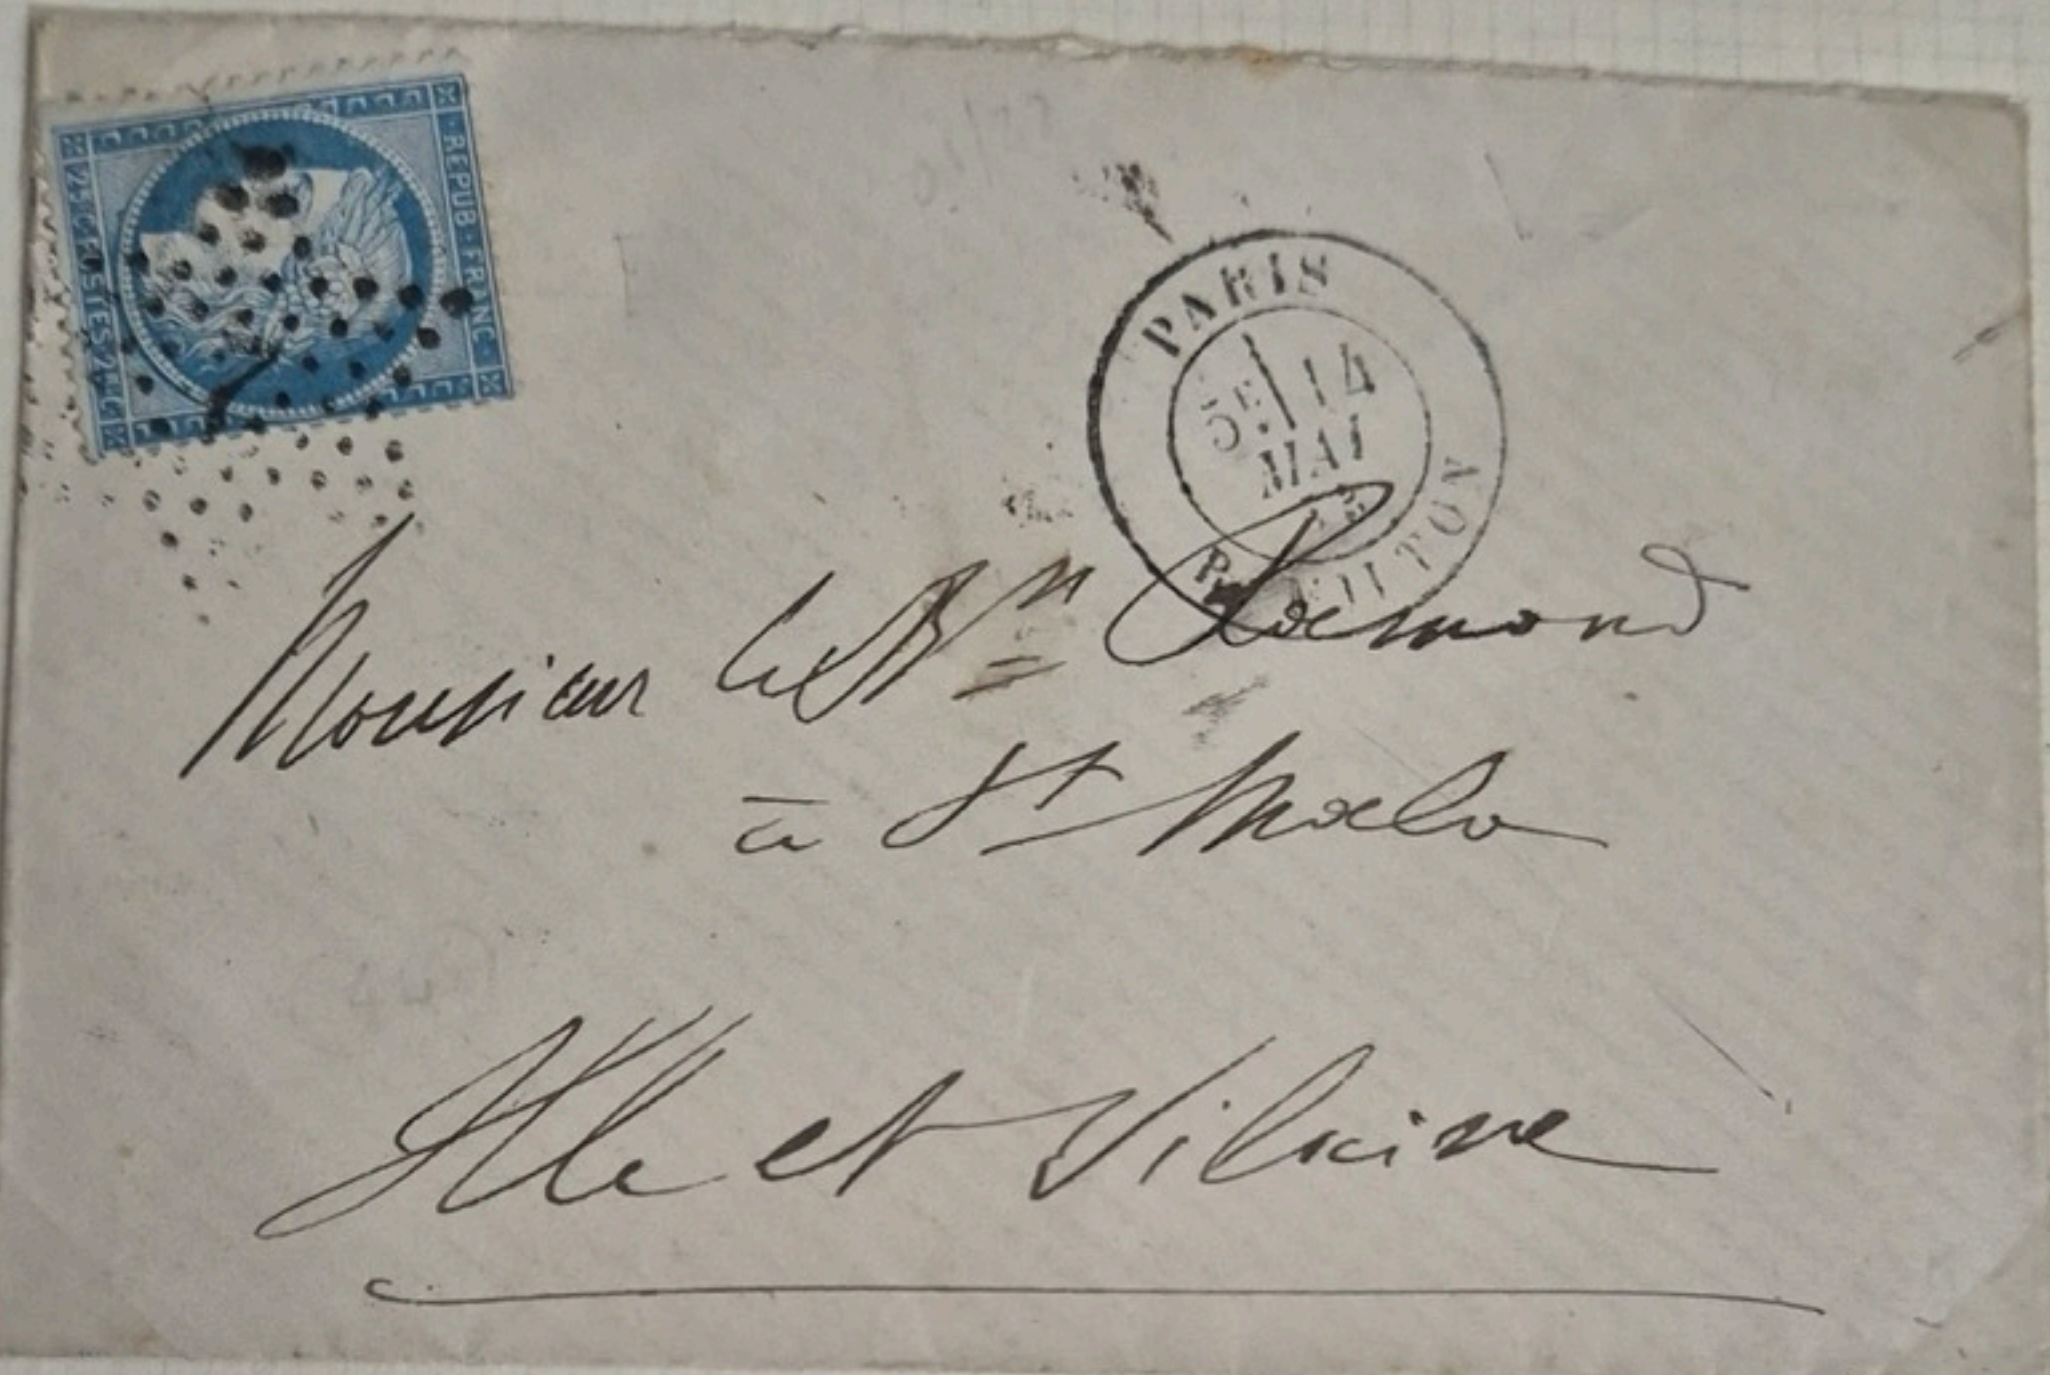 REPUB·FRANC·
25·C·POSTES·25·C
PARIS
5E 14
MAI
Monsieur le Bon Rosmond
à St Malo
Ille et Vilaine